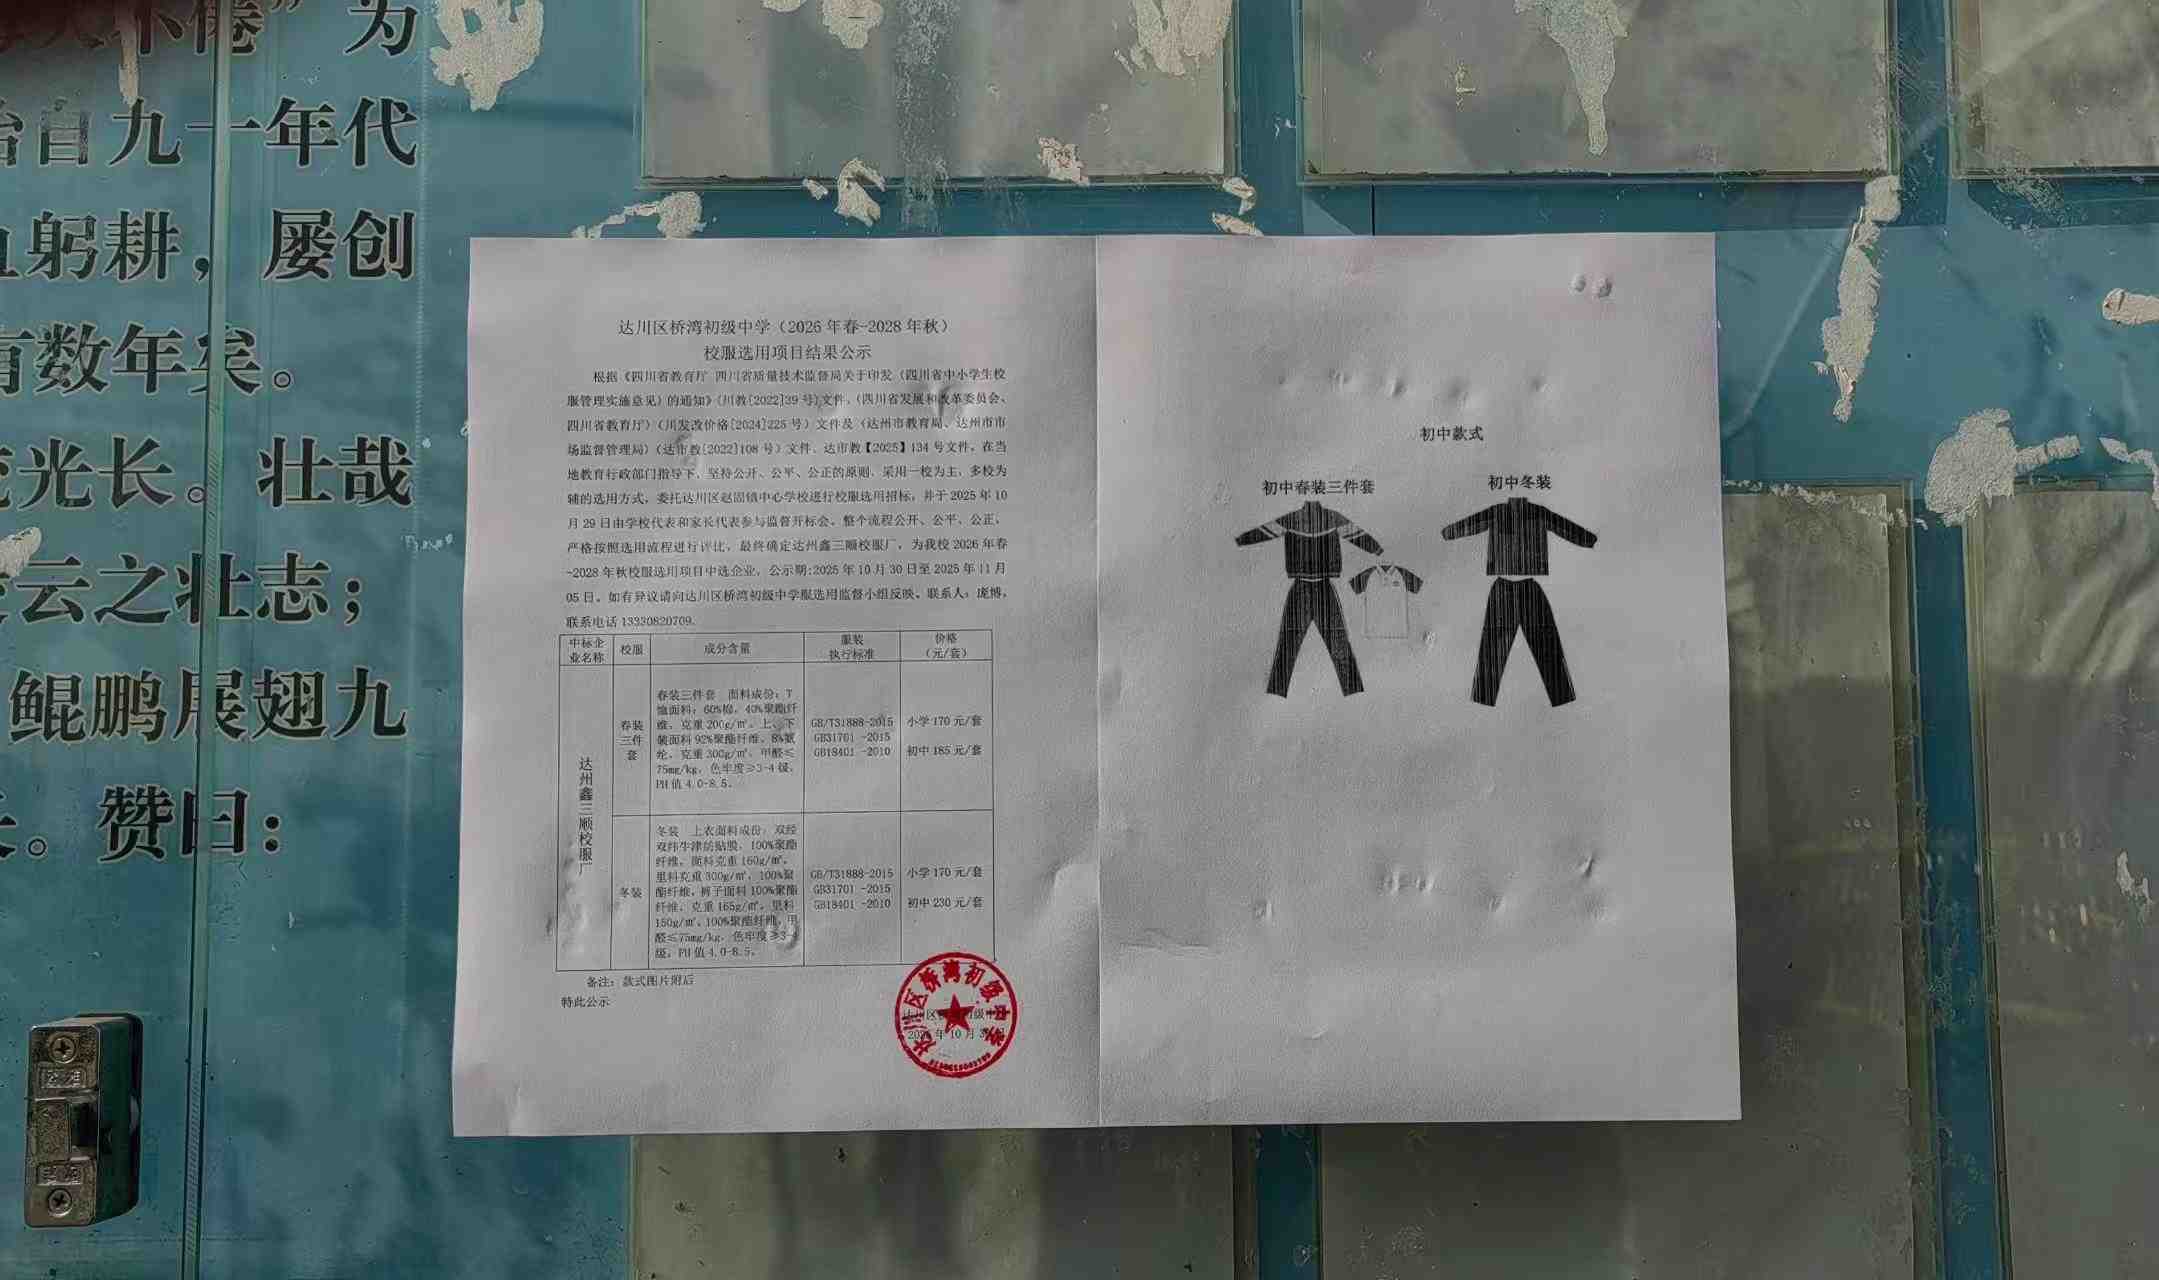 不倦”为
始自九一年代
躬耕，屡创
有数年矣。
光长。壮哉
云之壮志；
鲲鹏展翅九
。赞曰：
达川区桥湾初级中学（2026年春-2028年秋）
校服选用项目结果公示
根据《四川省教育厅 四川省质量技术监督局关于印发（四川省中小学生校
服管理实施意见）的通知》（川教[2022]39号）文件、（四川省发展和改革委员会、
四川省教育厅》（川发改价格[2024]225号）文件及（达州市教育局、达州市市
场监督管理局）（达市教[2022]108号）文件、达市教【2025】134号文件，在当
地教育行政部门指导下，坚持公开、公平、公正的原则，采用一校为主，多校为
辅的选用方式，委托达川区赵固镇中心学校进行校服选用招标，并于2025年10
月29日由学校代表和家长代表参与监督开标会，整个流程公开、公平、公正，
严格按照选用流程进行评比，最终确定达州鑫三顺校服厂，为我校2026年春
-2028年秋校服选用项目中选企业，公示期:2025年10月30日至2025年11月
05日。如有异议请向达川区桥湾初级中学服选用监督小组反映。联系人：庞博，
联系电话13330820709.
中标企业名称 校服 成分含量 服装执行标准 价格（元/套）
达州鑫三顺校服厂
春装三件套
春装三件套 面料成份：T
恤面料：60%棉，40%聚酯纤
维，克重200g/㎡。上、下
装面料92%聚酯纤维、8%氨
纶，克重300g/㎡，甲醛≤
75mg/kg，色牢度≥3-4级，
PH值4.0-8.5。
GB/T31888-2015
GB31701 -2015
GB18401 -2010
小学170元/套
初中185元/套
冬装
冬装 上衣面料成份：双经
双纬牛津纺贴膜，100%聚酯
纤维，面料克重160g/㎡，
里料克重300g/㎡，100%聚
酯纤维，裤子面料100%聚酯
纤维，克重165g/㎡，里料
150g/㎡，100%聚酯纤维，甲
醛≤75mg/kg，色牢度≥3-4
级，PH值4.0-8.5。
GB/T31888-2015
GB31701 -2015
GB18401 -2010
小学170元/套
初中230元/套
备注：款式图片附后
特此公示
达川区桥湾初级中学
初中款式
初中春装三件套
初中冬装